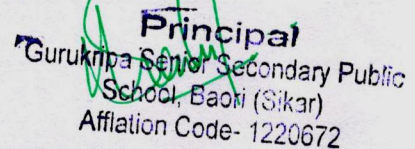 Principal
Gurukripa Senior Secondary Public
School, Baori (Sikar)
Affliation Code- 1220672